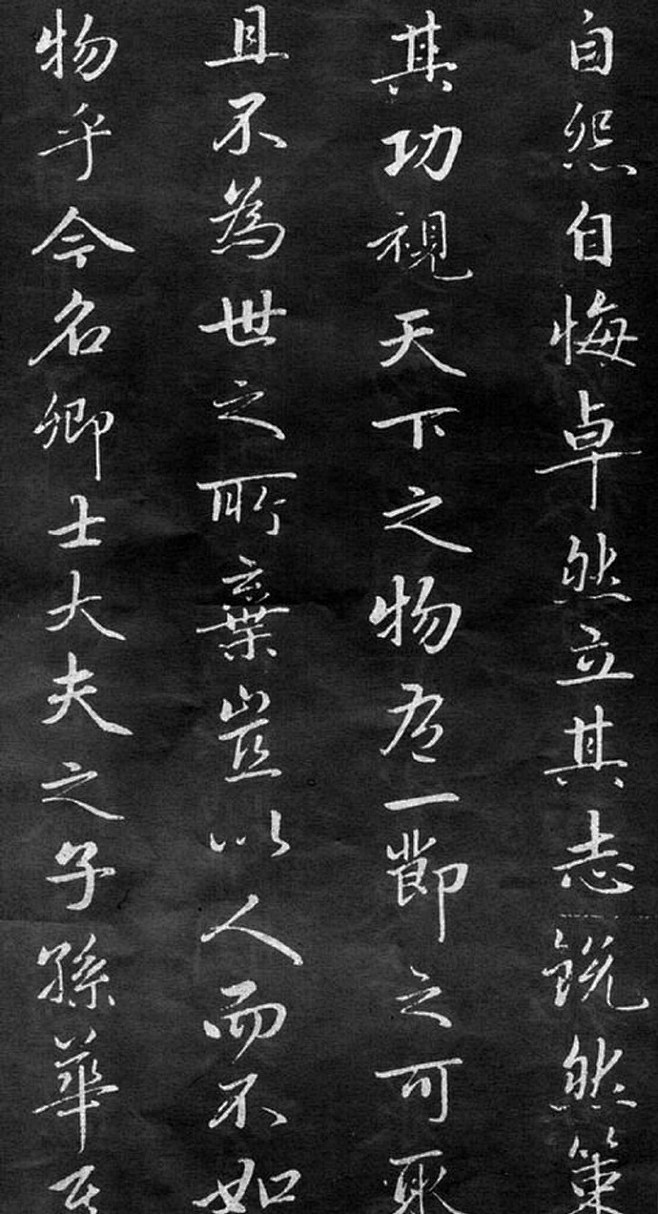 自怨自悔卓然立其志銳然策
其功視天下之物有一節之可取
且不為世之所棄豈以人而不如
物乎今名卿士大夫之子孫華其